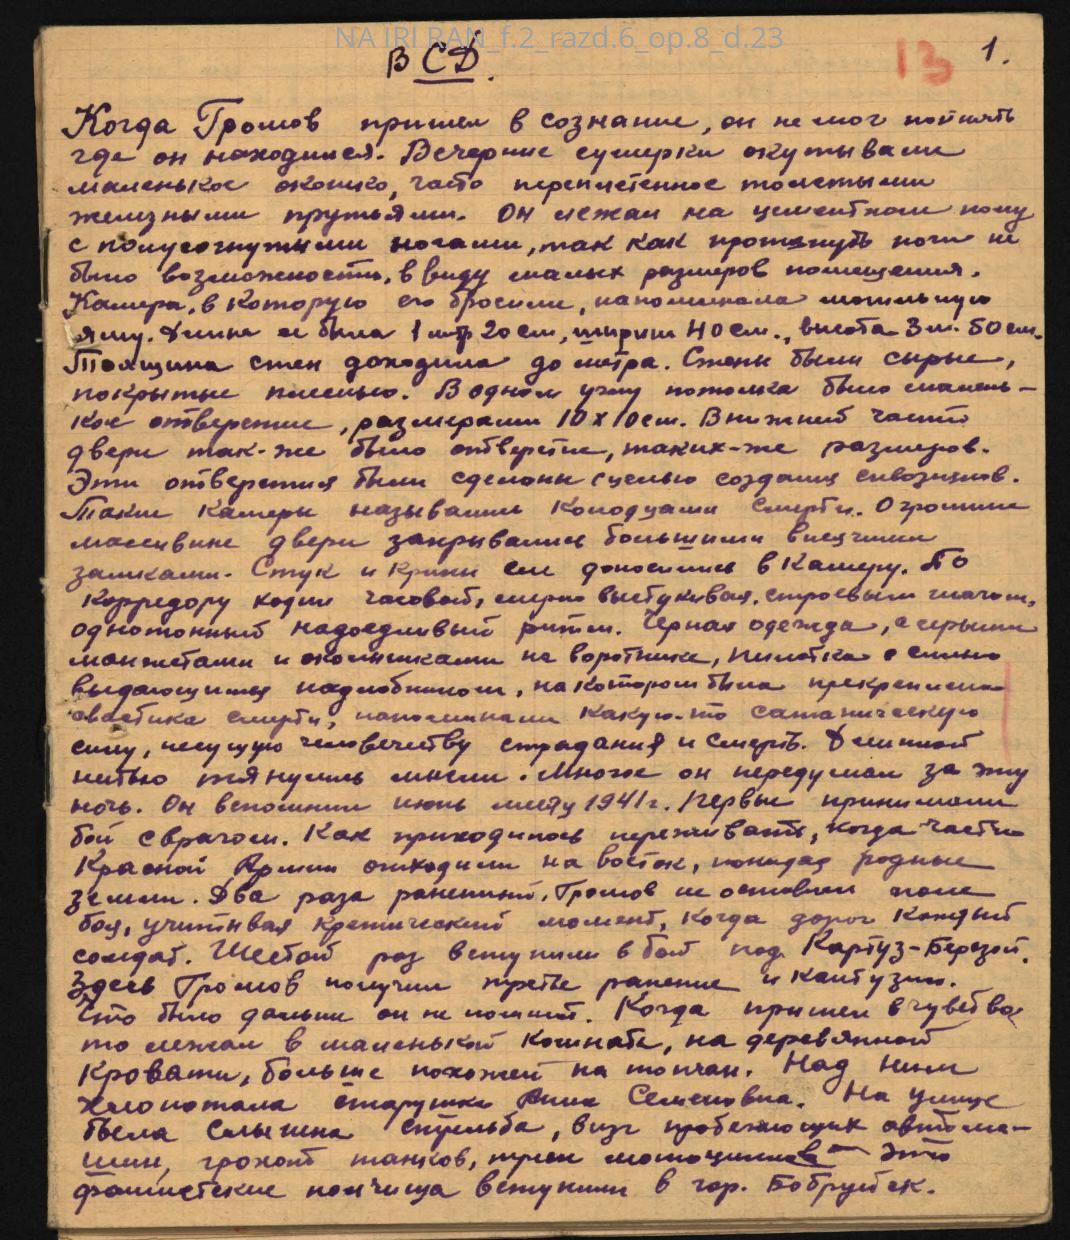 NA IRI RAN_f.2_razd.6_op.8_d.23
13 1.
В СД.
Когда Громов пришел в сознание, он не мог поинять
где он находился. Вечерние сумерки окутывали
маленькое окошко, часто переплетенное толстыми
железными прутьями. Он лежал на цементном полу
с полусогнутыми ногами, так как протянуть ноги не
было возможности, в виду малых размеров помещения.
Камера, в которую его бросили, напоминала могильную
яму. Длина ее была 1 мтр 20 см, ширин 40 см., высота 3 м. 50 см.
Толщина стен доходила до метра. Стены были сырые,
покрытые плесенью. В одном углу потолка было малень-
кое отверстие, размерами 10 х 10 см. В нижней части
двери так-же было отверстие, таких-же размеров.
Эти отверстия были сделаны с целью создания сквозняков.
Такие камеры назывались колодцами смерти. Огромные
массивные двери закрывались большими висячими
замками. Стук и крики еле доносились в камеру. По
корредору ходил часовой, мерно выстукивая, строевым шагом,
однотонный надоедливый ритм. Черная одежда, с серыми
манжетами и околышками на воротнике, пилотка с сильно
выдающимся надлобником, на котором была прекреплена
свастика смерти, напоминали какую-то сатаническую
силу, несущую человечеству страдания и смерть. Длинной
нитью тянулись мысли. Многое он передумал за эту
ночь. Он вспомнил июнь месяц 1941 г. Первые принимали
бой с врагом. Как приходилось переживать, когда части
Красной Армии отходили на восток, покидая родные
земли. Два раза раненный, Громов не оставлял поле
боя, учитывая критический момент, когда дорог каждый
солдат. Шестой раз вступили в бой под Картуз-Березой.
Здесь Громов получил третье ранение и кантузию.
Что было дальше он не помнит. Когда пришел в чувство
то лежал в маленькой комнате, на деревянной
кровати, больше похожей на топчан. Над ним
хлопотала старушка Анна Семеновна. На улице
была слышна стрельба, визг пробегающих автома-
шин, грохот танков, треск мотоциклов – Это
фашистские полчища вступили в гор. Бобруйск.